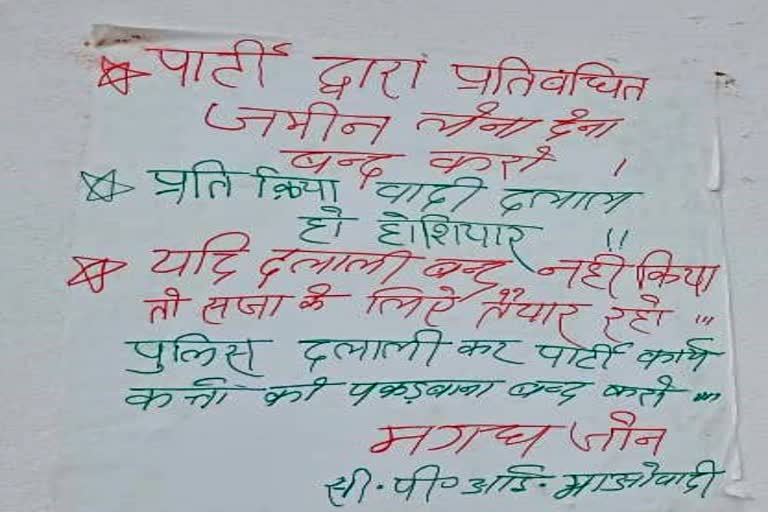 पार्टी द्वारा प्रतिबंधित
जमीन लेना देना
बन्द करो ।
प्रति क्रिया वादी दलाल
हो होशियार !!
यदि दलाली बन्द नही किया
तो सजा के लिए तैयार रहो !!!
पुलिस दलाली कर पार्टी कार्य
कर्त्ता को पकड़वाना बन्द करो !!!
मगध जोन
सी.पी॰आई.माओवादी